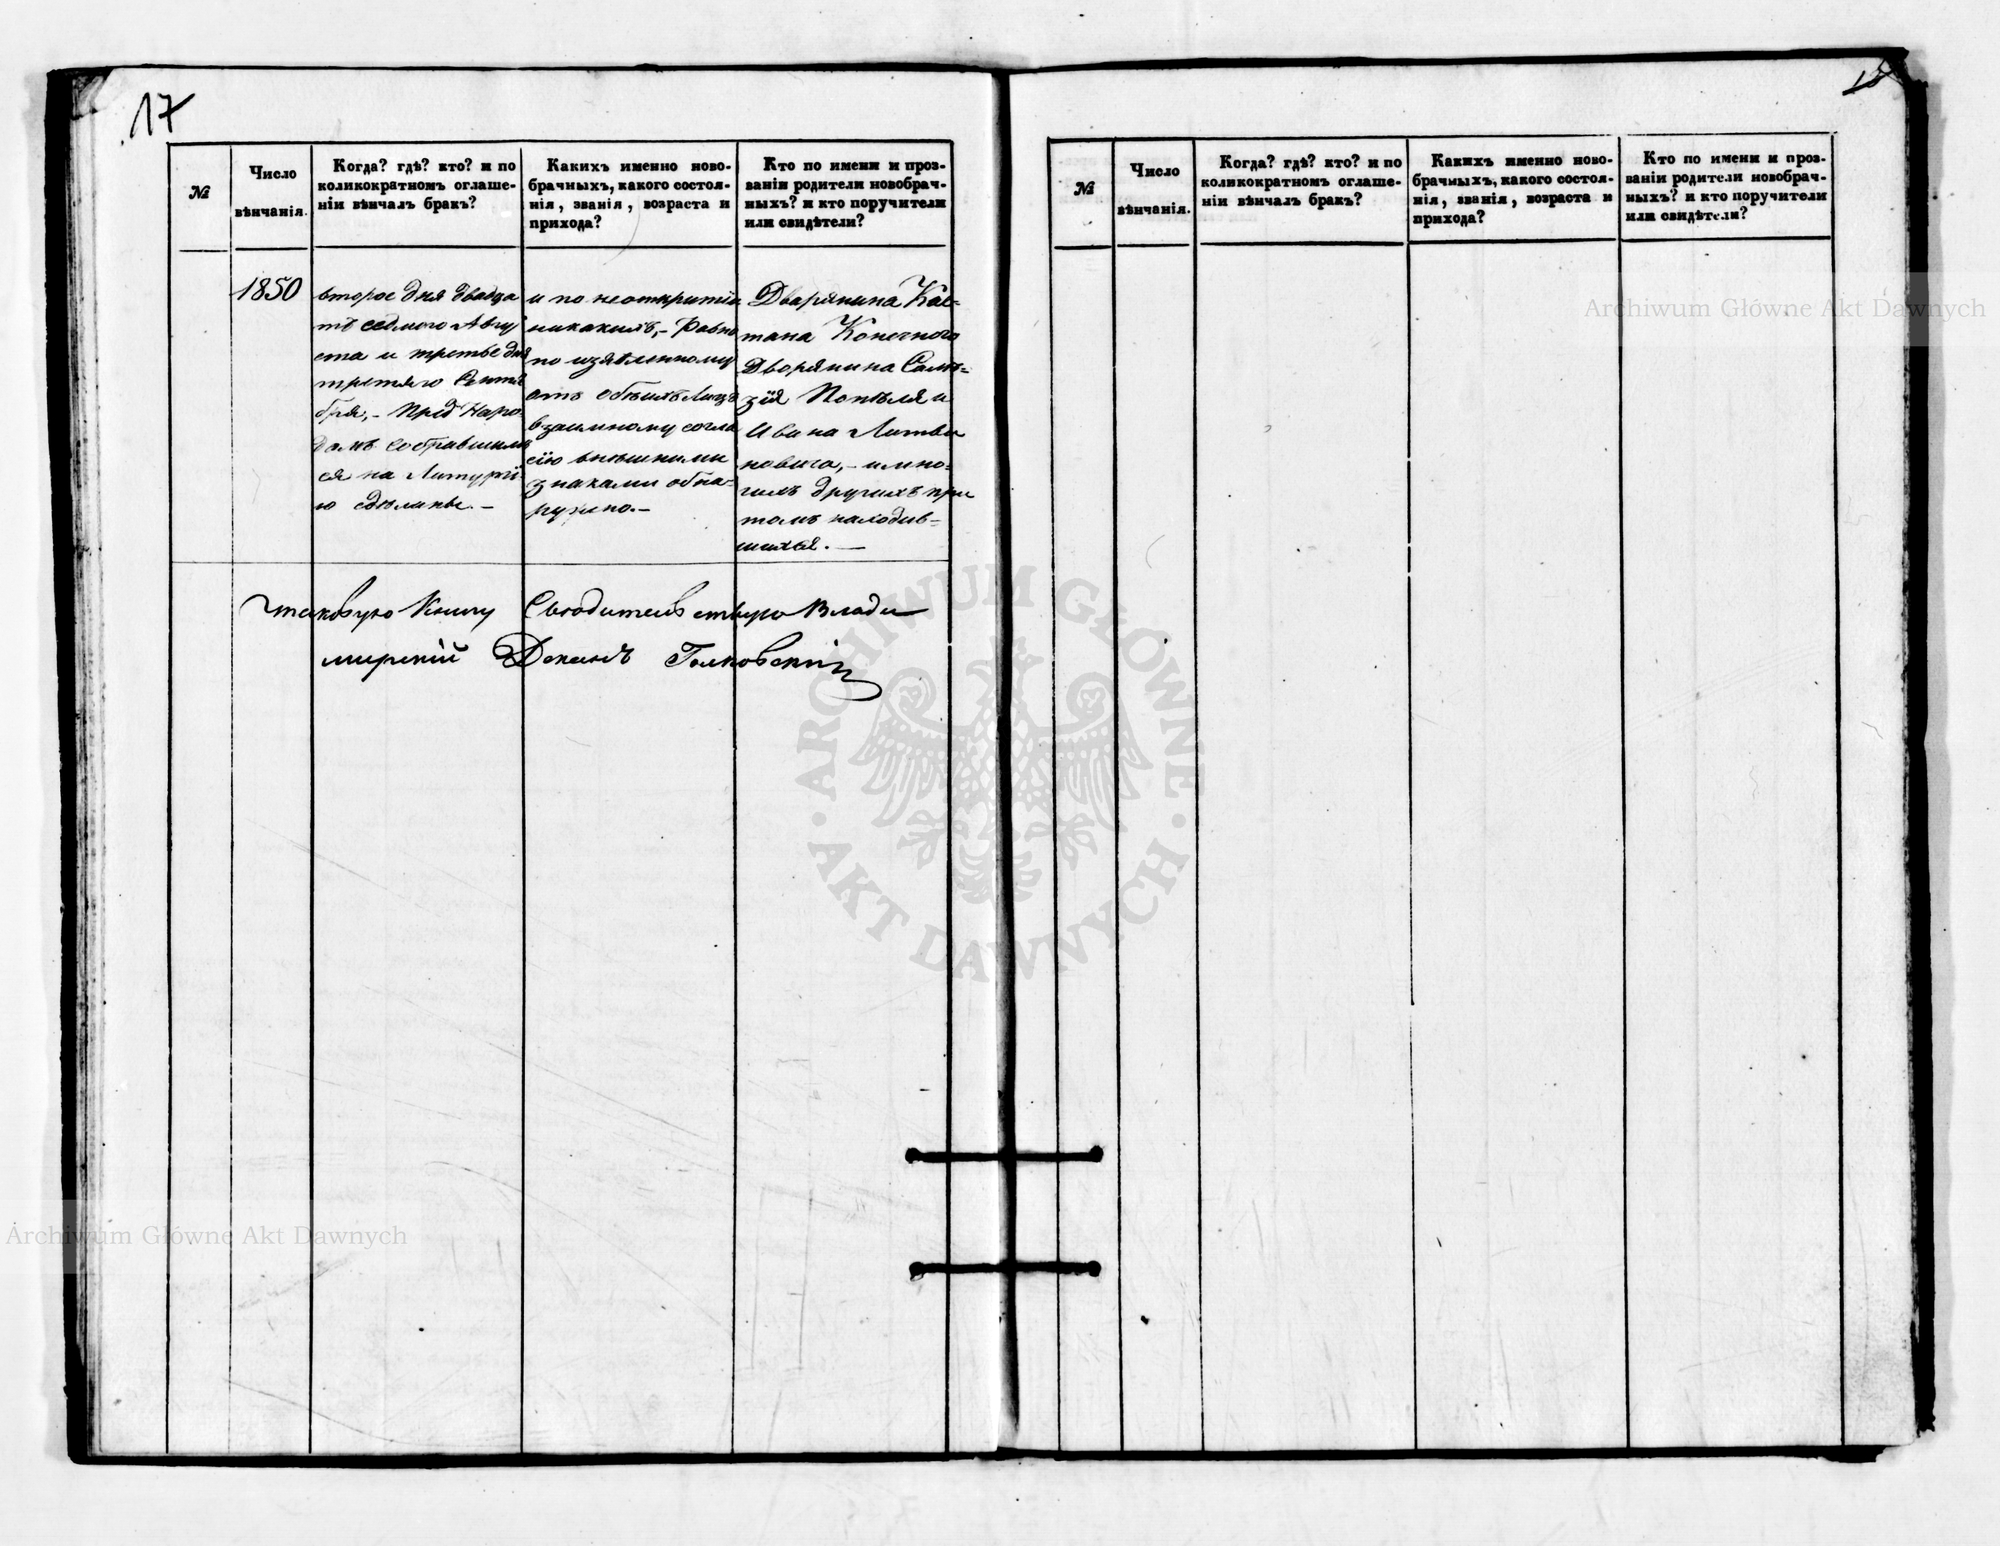 17
№
Число
вѣнчанія.
Когда? гдѣ? кто? и по
коликократномъ оглаше-
ніи вѣнчалъ бракъ?
Какихъ именно ново-
брачныхъ, какого состоя-
нія, званія, возраста и
прихода?
Кто по имени и проз-
ваніи родители новобрач-
ныхъ? и кто поручители
или свидѣтели?
1850
второе дня двадца
тѣ седмого Авгу
ста и третье дня
третяго Сентя
бря,- Пред Наро-
домъ собравшим
ся на Литургі-
ю сдѣланы. -
и по неоткрытіи
никакихъ,- равно
по изявленному
отъ обѣихъ Лицъ
взаимному согла
сію внѣшними
знаками обна-
ружено.-
Дворянина Кае-
тана Конечного
Дворянина Саль-
зія Попѣля и
Ивана Литви
новича,- и мно-
гихъ другихъ при
томъ находив-
шихся. —
таковую Книгу Свидетельствую Влади
мирскій Деканъ
№
Число
вѣнчанія.
Когда? гдѣ? кто? и по
коликократномъ оглаше-
ніи вѣнчалъ бракъ?
Какихъ именно ново-
брачныхъ, какого состоя-
нія, званія, возраста и
прихода?
Кто по имени и проз-
ваніи родители новобрач-
ныхъ? и кто поручители
или свидѣтели?
Archiwum Główne Akt Dawnych
ARCHIWUM GŁÓWNE
AKT DAWNYCH
Archiwum Główne Akt Dawnych